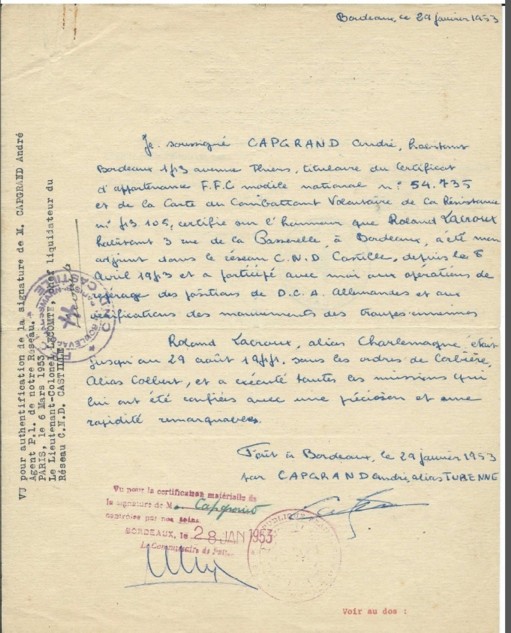 Bordeaux, le 29 janvier 1953
Je soussigné CAPGRAND André, habitant
Bordeaux 143 avenue Thiers, titulaire du Certificat
d'appartenance F.F.C modèle national n° 54.735
et de la Carte du Combattant Volontaire de la Résistance
n° 43 105, certifie sur l'honneur que Roland Lacroux
habitant 3 rue de la à Bordeaux, a été mon
adjoint dans le réseau C.N.D Castille, depuis le 6
Avril 1943 et a participé avec moi aux opérations de
repérage des positions de D.C.A. Allemandes et aux
vérifications des mouvements des troupes ennemies
Roland Lacroux, alias Charlemagne, était
jusqu'au 29 août 1944, sous les ordres de
Alias Colbert, et a exécuté toutes les missions qui
lui ont été confiées avec une précision et une
rapidité remarquables.
Fait à Bordeaux, le 29 janvier 1953
par CAPGRAND André, alias TURENNE
Vu pour la certification matérielle de
la signature de M. Capgrand
BORDEAUX, le 28 JAN 1953
Le Commissaire de
Voir au dos :
VU pour authentification de la signature de M. CAPGRAND André
Agent P.1. de notre Réseau.
PARIS, le 6 Mars 1953.
Le Lieutenant-Colonel LECOMTE, liquidateur du
Réseau C.N.D. CASTILLE